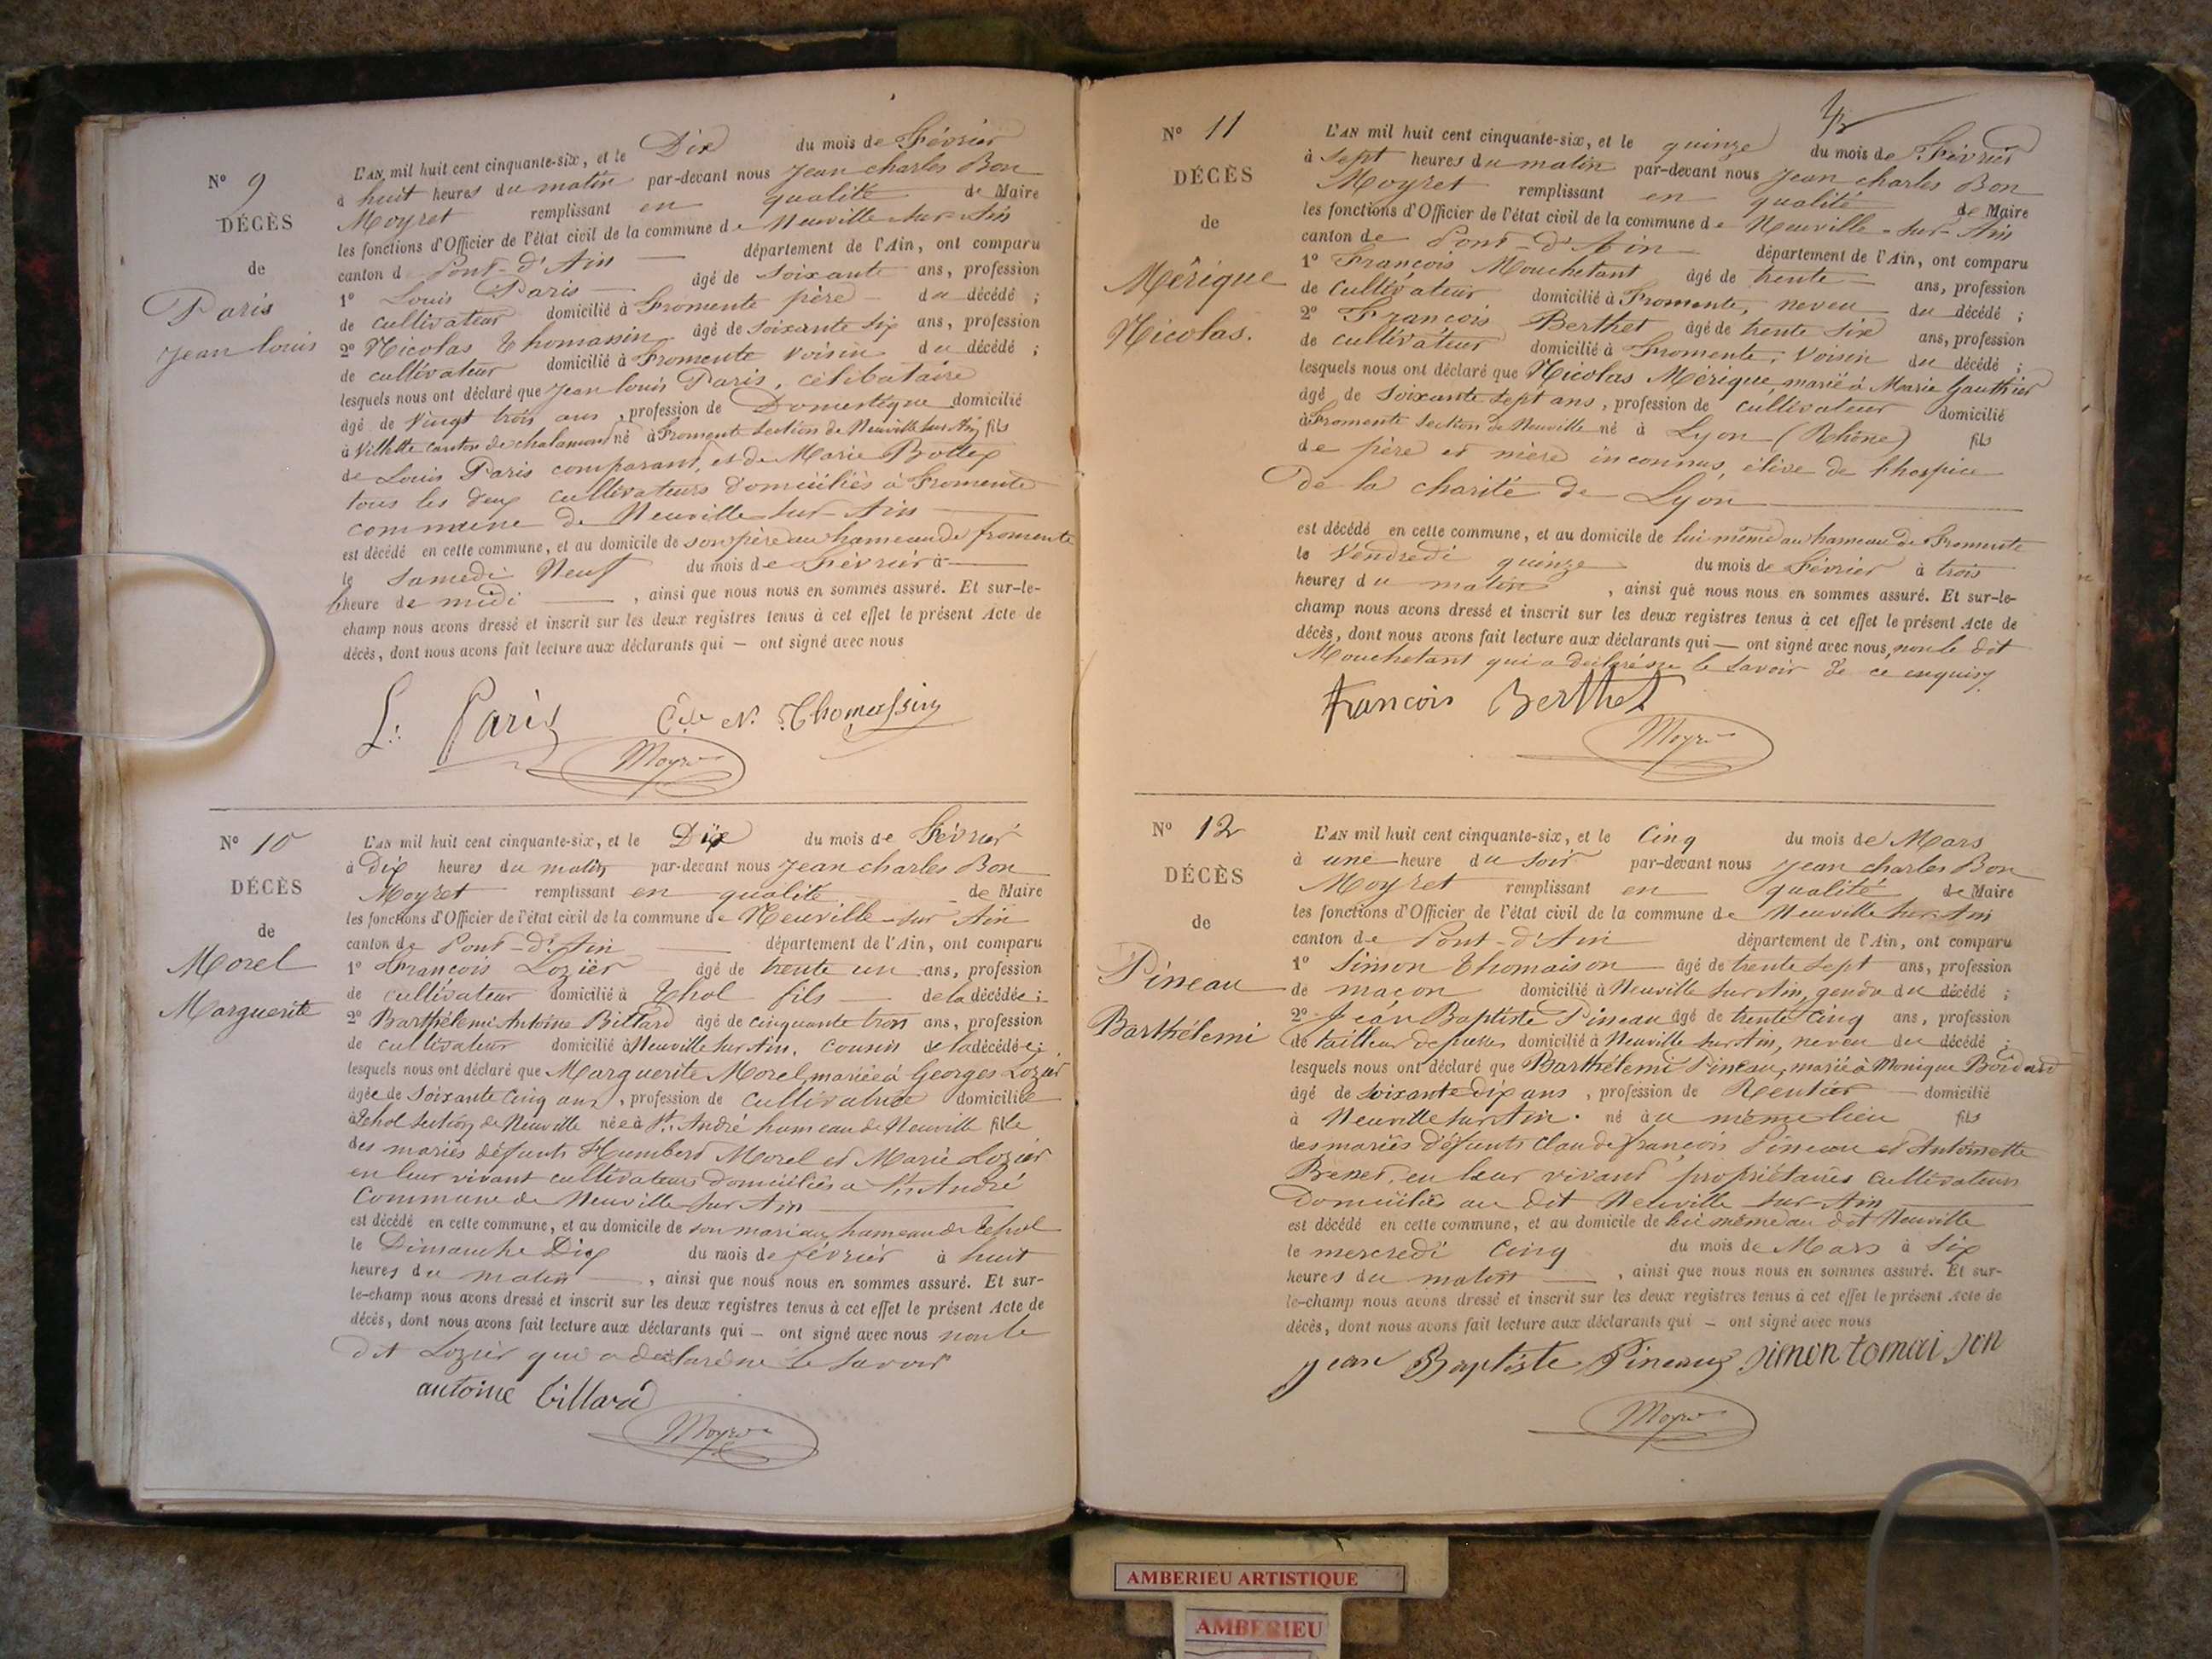 N° 9
DÉCÈS
de
Paris
Jean Louis
L'AN mil huit cent cinquante-six, et le Dix du mois de Février
à huit heures du matin par-devant nous Jean Charles Bon
Moyret remplissant en qualité de Maire
les fonctions d'Officier de l'état civil de la commune de Neuville sur Ain
canton d Pont-d'Ain département de l'Ain, ont comparu
1° Louis Paris âgé de soixante ans, profession
de cultivateur domicilié à Fromente père du décédé ;
2° Nicolas Thomassin âgé de soixante six ans, profession
de cultivateur domicilié à Fromente voisin du décédé ;
lesquels nous ont déclaré que Jean Louis Paris, célibataire
âgé de vingt trois ans, profession de Domestique domicilié
à Villette canton de chalamont né à Fromente section de Neuville sur Ain fils
de Louis Paris comparant, et de Marie Bottex
tous les deux cultivateurs domiciliés à Fromente
commune de Neuville-sur-Ain
est décédé en cette commune, et au domicile de son père au hameau de fromente
le samedi Neuf du mois de Février à
l'heure de midi , ainsi que nous nous en sommes assuré. Et sur-le-
champ nous avons dressé et inscrit sur les deux registres tenus à cet effet le présent Acte de
décès, dont nous avons fait lecture aux déclarants qui — ont signé avec nous
L. Paris N. Thomassin
Moyret
N° 10
DÉCÈS
de
Morel
Marguerite
L'AN mil huit cent cinquante-six, et le Dix du mois de Février
à Dix heures du matin par-devant nous Jean Charles Bon
Moyret remplissant en qualité de Maire
les fonctions d'Officier de l'état civil de la commune de Neuville-sur Ain
canton de Pont-d'Ain département de l'Ain, ont comparu
1° François Lozier âgé de trente un ans, profession
de cultivateur domicilié à Thol fils de la décédée ;
2° Barthélemi Antoine Billard âgé de cinquante trois ans, profession
de cultivateur domicilié à Neuville sur Ain, cousin de la décédée ;
lesquels nous ont déclaré que Marguerite Morel, mariée à Georges Lozier
âgée de soixante cinq ans, profession de cultivatrice domiciliée
à Thol section de Neuville née à St. André hameau de Neuville fille
des mariés défunts Humbert Morel et Marie Lozier
en leur vivant cultivateurs domiciliés à St André
commune de Neuville sur Ain
est décédé en cette commune, et au domicile de son mari au hameau de Thol
le Dimanche Dix du mois de février à huit
heures du matin , ainsi que nous nous en sommes assuré. Et sur-
le-champ nous avons dressé et inscrit sur les deux registres tenus à cet effet le présent Acte de
décès, dont nous avons fait lecture aux déclarants qui — ont signé avec nous non le
dit Lozier qui a déclaré ne le savoir
antoine billard
Moyret
N° 11
DÉCÈS
de
Mérique
Nicolas.
L'AN mil huit cent cinquante-six, et le quinze du mois de Février
à sept heures du matin par-devant nous Jean Charles Bon
Moyret remplissant en qualité de Maire
les fonctions d'Officier de l'état civil de la commune de Neuville-sur-Ain
canton de Pont-d'Ain département de l'Ain, ont comparu
1° François Mouchetant âgé de trente ans, profession
de cultivateur domicilié à Fromente, neveu du décédé ;
2° François Berthet âgé de trente six ans, profession
de cultivateur domicilié à Fromente, voisin du décédé ;
lesquels nous ont déclaré que Nicolas Mérique, marié à Marie Gauthier
âgé de soixante sept ans, profession de cultivateur domicilié
à Fromente section de Neuville né à Lyon (Rhône) fils
de père et mère inconnus, élève de l'hospice
de la charité de Lyon
est décédé en cette commune, et au domicile de lui même au hameau de Fromente
le Vendredi quinze du mois de Février à trois
heures du matin , ainsi que nous nous en sommes assuré. Et sur-le-
champ nous avons dressé et inscrit sur les deux registres tenus à cet effet le présent Acte de
décès, dont nous avons fait lecture aux déclarants qui — ont signé avec nous, non le dit
Mouchetant qui a déclaré ne le savoir de ce enquis
francois Berthet
Moyret
N° 12
DÉCÈS
de
Pineau
Barthélemi
L'AN mil huit cent cinquante-six, et le cinq du mois de Mars
à une heure du soir par-devant nous Jean Charles Bon
Moyret remplissant en qualité de Maire
les fonctions d'Officier de l'état civil de la commune de Neuville sur Ain
canton de Pont-d'Ain département de l'Ain, ont comparu
1° Simon Thomaison âgé de trente sept ans, profession
de maçon domicilié à Neuville sur Ain, gendre du décédé ;
2° Jean Baptiste Pineau âgé de trente cinq ans, profession
de tailleur de pierres domicilié à Neuville sur Ain, neveu du décédé ;
lesquels nous ont déclaré que Barthélemi Pineau, marié à Monique
âgé de soixante dix ans, profession de Rentier domicilié
à Neuville sur Ain. né au même lieu fils
des mariés défunts Claude françois Pineau et Antoinette
en leur vivant propriétaires cultivateurs
domiciliés au dit Neuville sur-Ain
est décédé en cette commune, et au domicile de lui même au dit Neuville
le mercredi cinq du mois de Mars à six
heures du matin , ainsi que nous nous en sommes assuré. Et sur-
le-champ nous avons dressé et inscrit sur les deux registres tenus à cet effet le présent Acte de
décès, dont nous avons fait lecture aux déclarants qui — ont signé avec nous
jean Baptiste Pineau simon tomai son
Moyret
AMBERIEU ARTISTIQUE
AMBERIEU